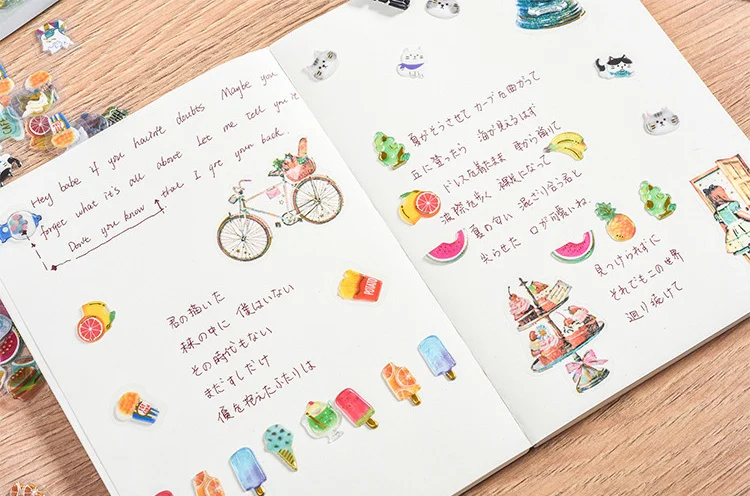 Hey babe if you havin't doubts Maybe you
forget what it's all about Let me tell you it
Don't you know that I got your back.
君の描いた
森の中に 僕はいない
その時代もない
まだすしだけ
僕を抱えたふたりは
POTATO
夏がそうさせて カーブを曲がって
丘に登ったら 海が見えるはず
ドレスを着たまま 母から借りて
波際を歩く 裸足になって
夏の匂い 混ざり合う君と
尖らせた 口が愛いね
見つけられずに
それでもこの世界
廻り続けて